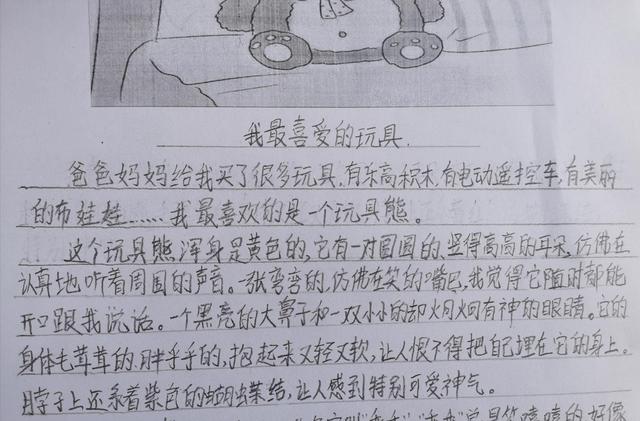 我最喜爱的玩具.
爸爸妈妈给我买了很多玩具,有乐高积木,有电动遥控车,有美丽
的布娃娃……我最喜欢的是一个玩具熊。
这个玩具熊,浑身是黄色的,它有一对圆圆的、竖得高高的耳朵,仿佛在
认真地听着周围的声音。一张弯弯的,仿佛在笑的嘴巴,我觉得它随时都能
开口跟我说话。一个黑亮的大鼻子和一双小小的却炯炯有神的眼睛。它的
身体毛茸茸的,胖乎乎的,抱起来又轻又软,让人恨不得把自己埋在它的身上。
脖子上还系着紫色的蝴蝶结,让人感到特别可爱神气。
总是笑嘻嘻的,好像